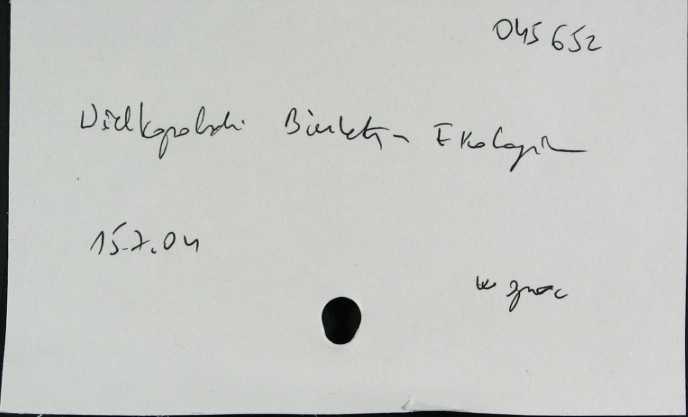 045652
Wielkopolski Biuletyn Ekologiczny
15.7.04